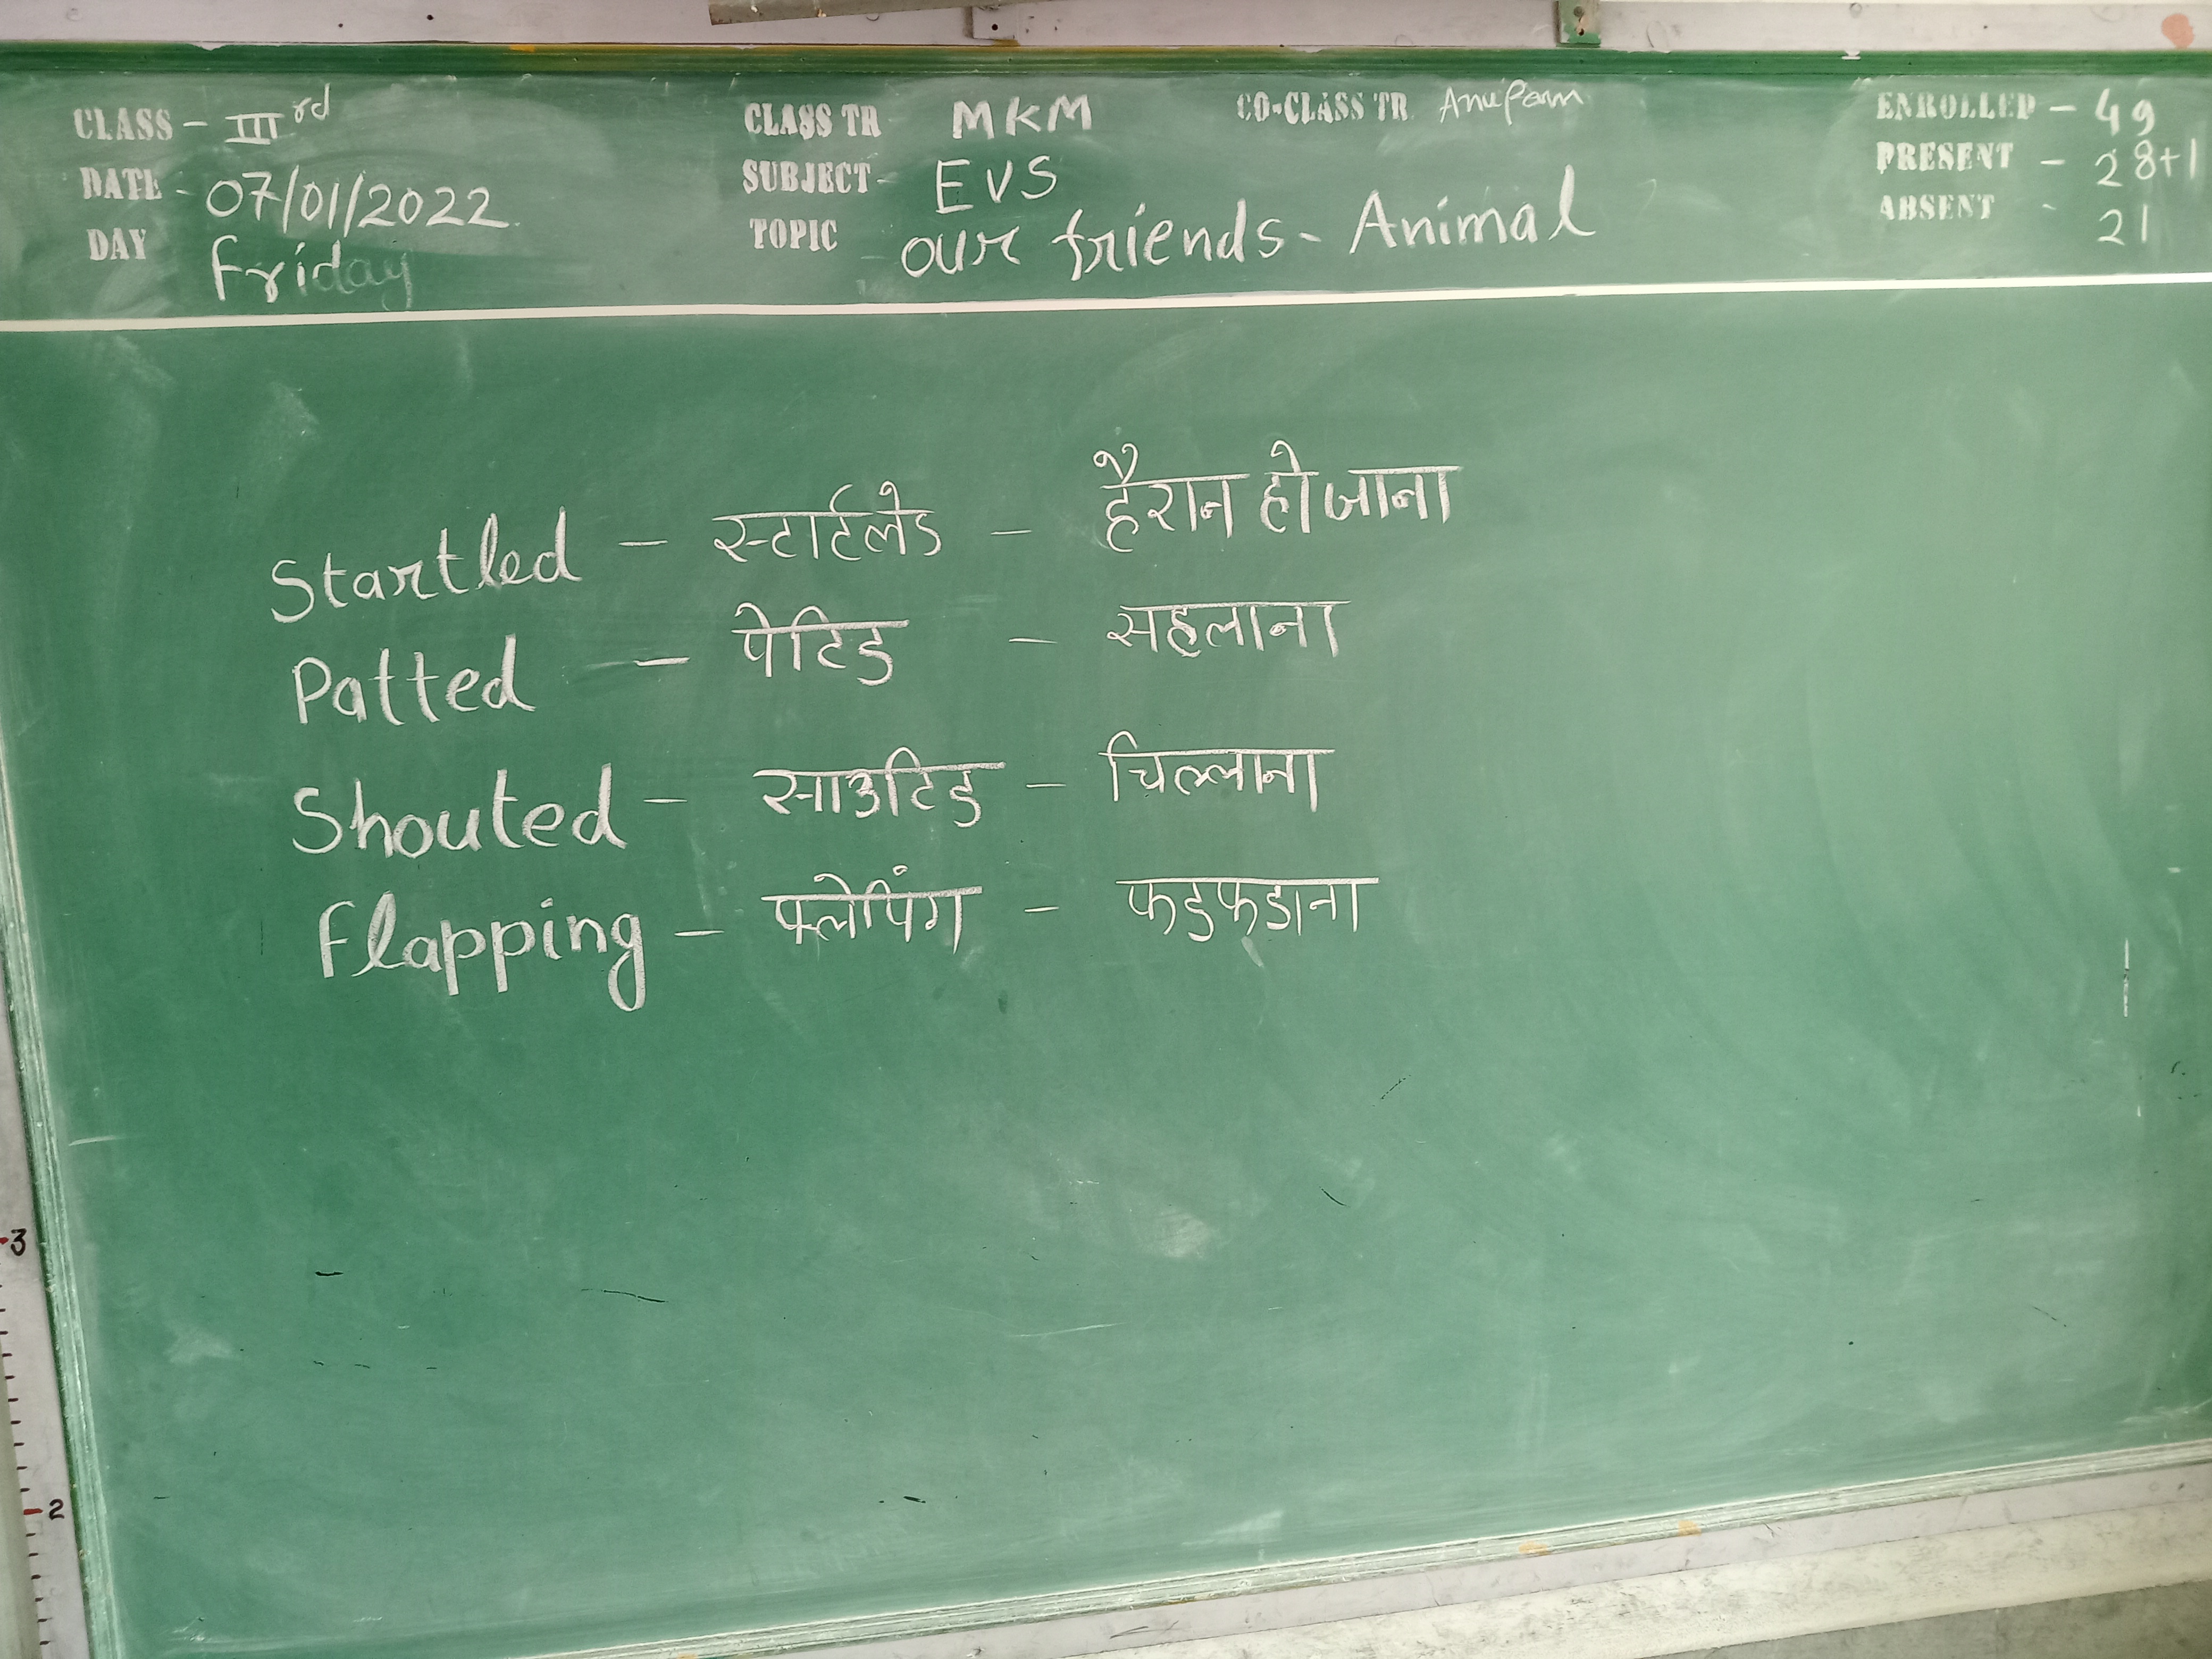 CLASS - IIIrd
DATE - 07/01/2022
DAY Friday
CLASS TR MKM
SUBJECT - EVS
TOPIC our friends - Animal
CO-CLASS TR Anupam
ENROLLED - 49
PRESENT - 28+1
ABSENT - 21
Startled - स्टार्टलेड - हैरान हो जाना
Patted - पेटिड - सहलाना
Shouted - साउटिड - चिल्लाना
Flapping - फ्लेपिंग - फडफडाना
3
2